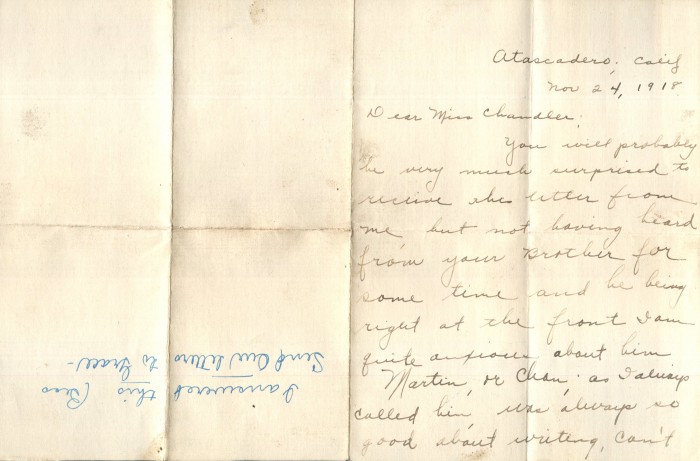 Atascadero, Calif
Nov 24, 1918.
Dear Miss Chandler;
You will probably
be very much surprised to
receive this letter from
me but not having heard
from your Brother for
some time and he being
right at the front I am
quite anxious about him
Martin, or Chan, as I always
called him, was always so
good about writing, can't
I answered this (Bess
Send Our letters to Grace-